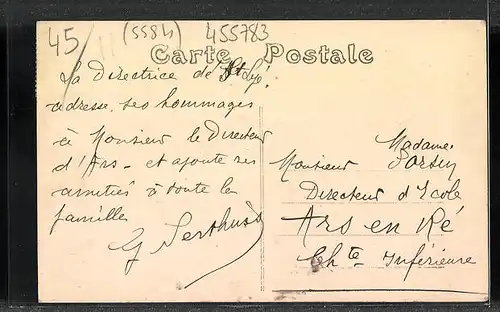 45
(5584)
455783
Carte Postale
La Directrice de St
adresse ses hommages
à Monsieur le Directeur
d'Ars - et ajoute ses
amitiés à toute la
famille
Madame
Monsieur
Directeur d'Ecole
Ars en Ré
Ch te Inférieure